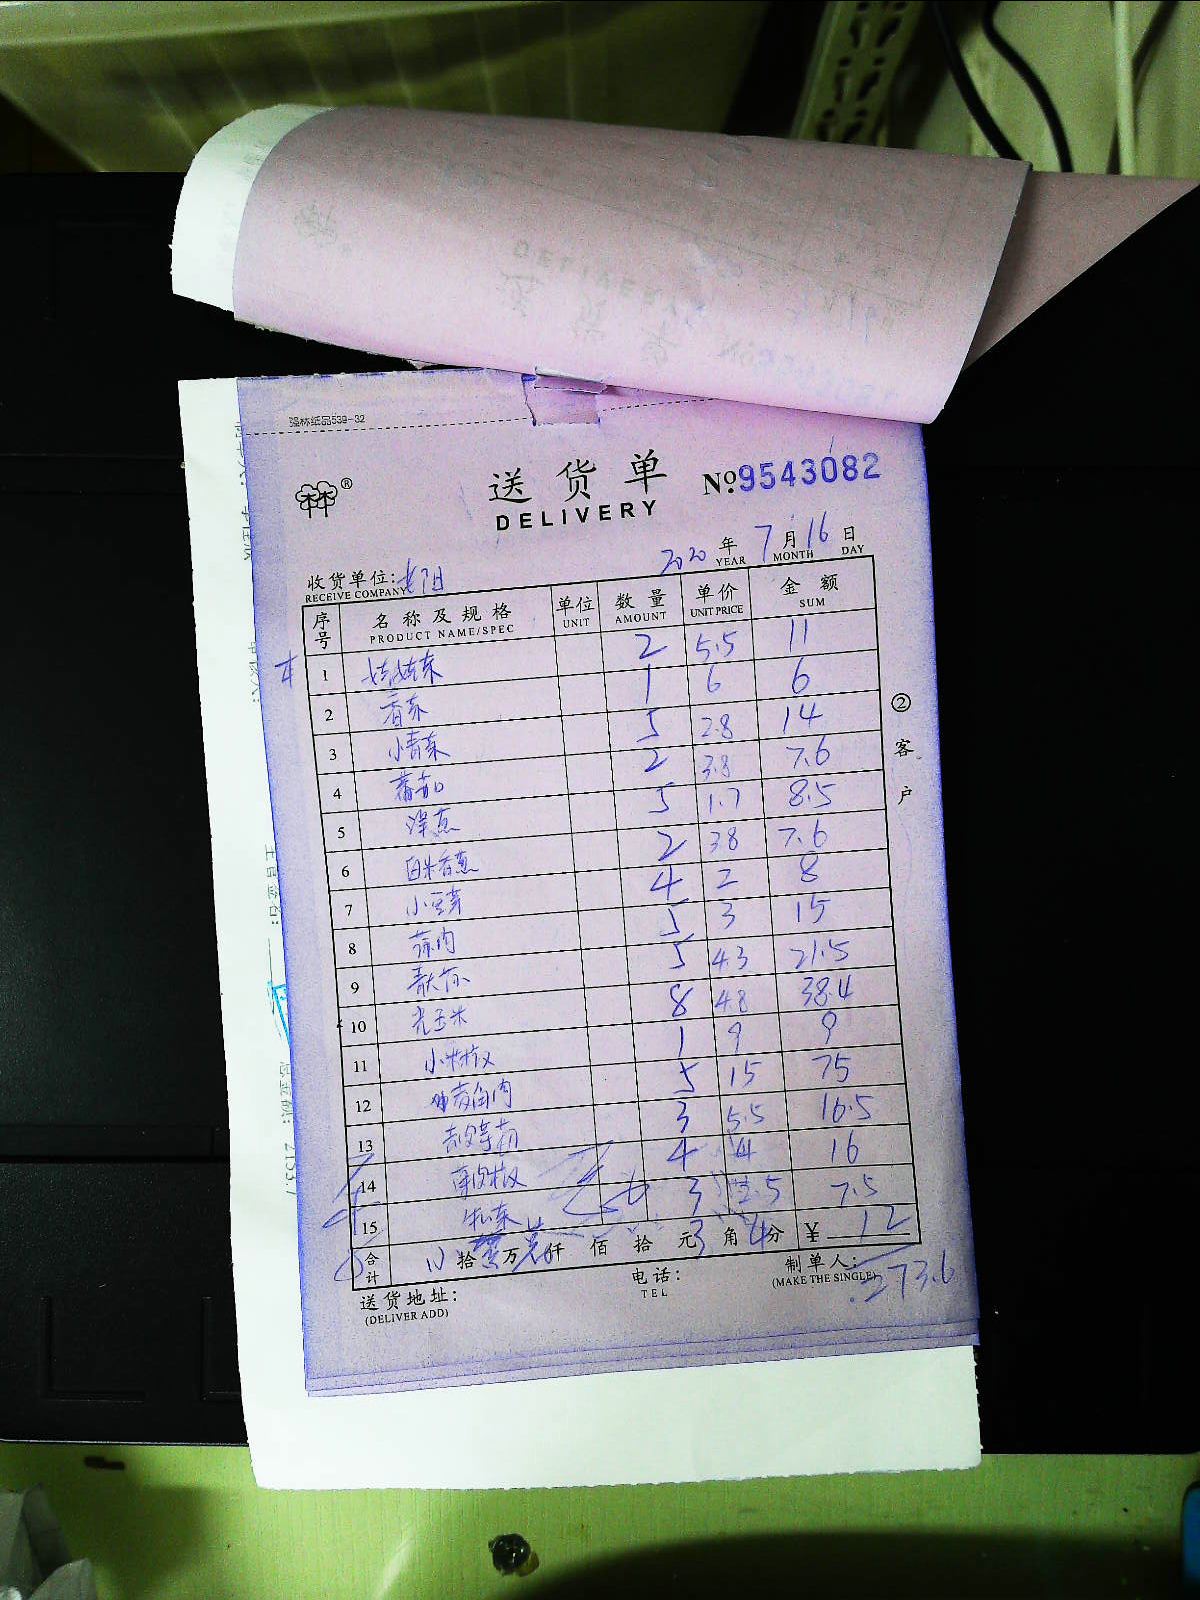 强林纸品539-32
林林®
送货单 No.9543082
DELIVERY
2020年 7月 16日
YEAR MONTH DAY
收货单位:
RECEIVE COMPANY
序号 名称及规格 单位 数量 单价 金额
PRODUCT NAME/SPEC UNIT AMOUNT UNIT PRICE SUM
1 娃娃菜 2 5.5 11
2 香菜 1 6 6
3 小青菜 5 2.8 14
4 蕃茄 2 3.8 7.6
5 洋葱 5 1.7 8.5
6 香葱 2 3.8 7.6
7 小豆芽 4 2 8
8 蒜肉 5 3 15
9 5 4.3 21.5
10 光玉米 8 4.8 38.4
11 小米椒 1 9 9
12 5 15 75
13 3 5.5 16.5
14 4 4 16
15 3 2.5 7.5
合计 拾 万 仟 佰 拾 元 3 角 4 分 ¥ 12
送货地址:
(DELIVER ADD)
电话:
TEL
制单人:
(MAKE THE SINGLE)
273.6
②客户
总金额: 2133.7